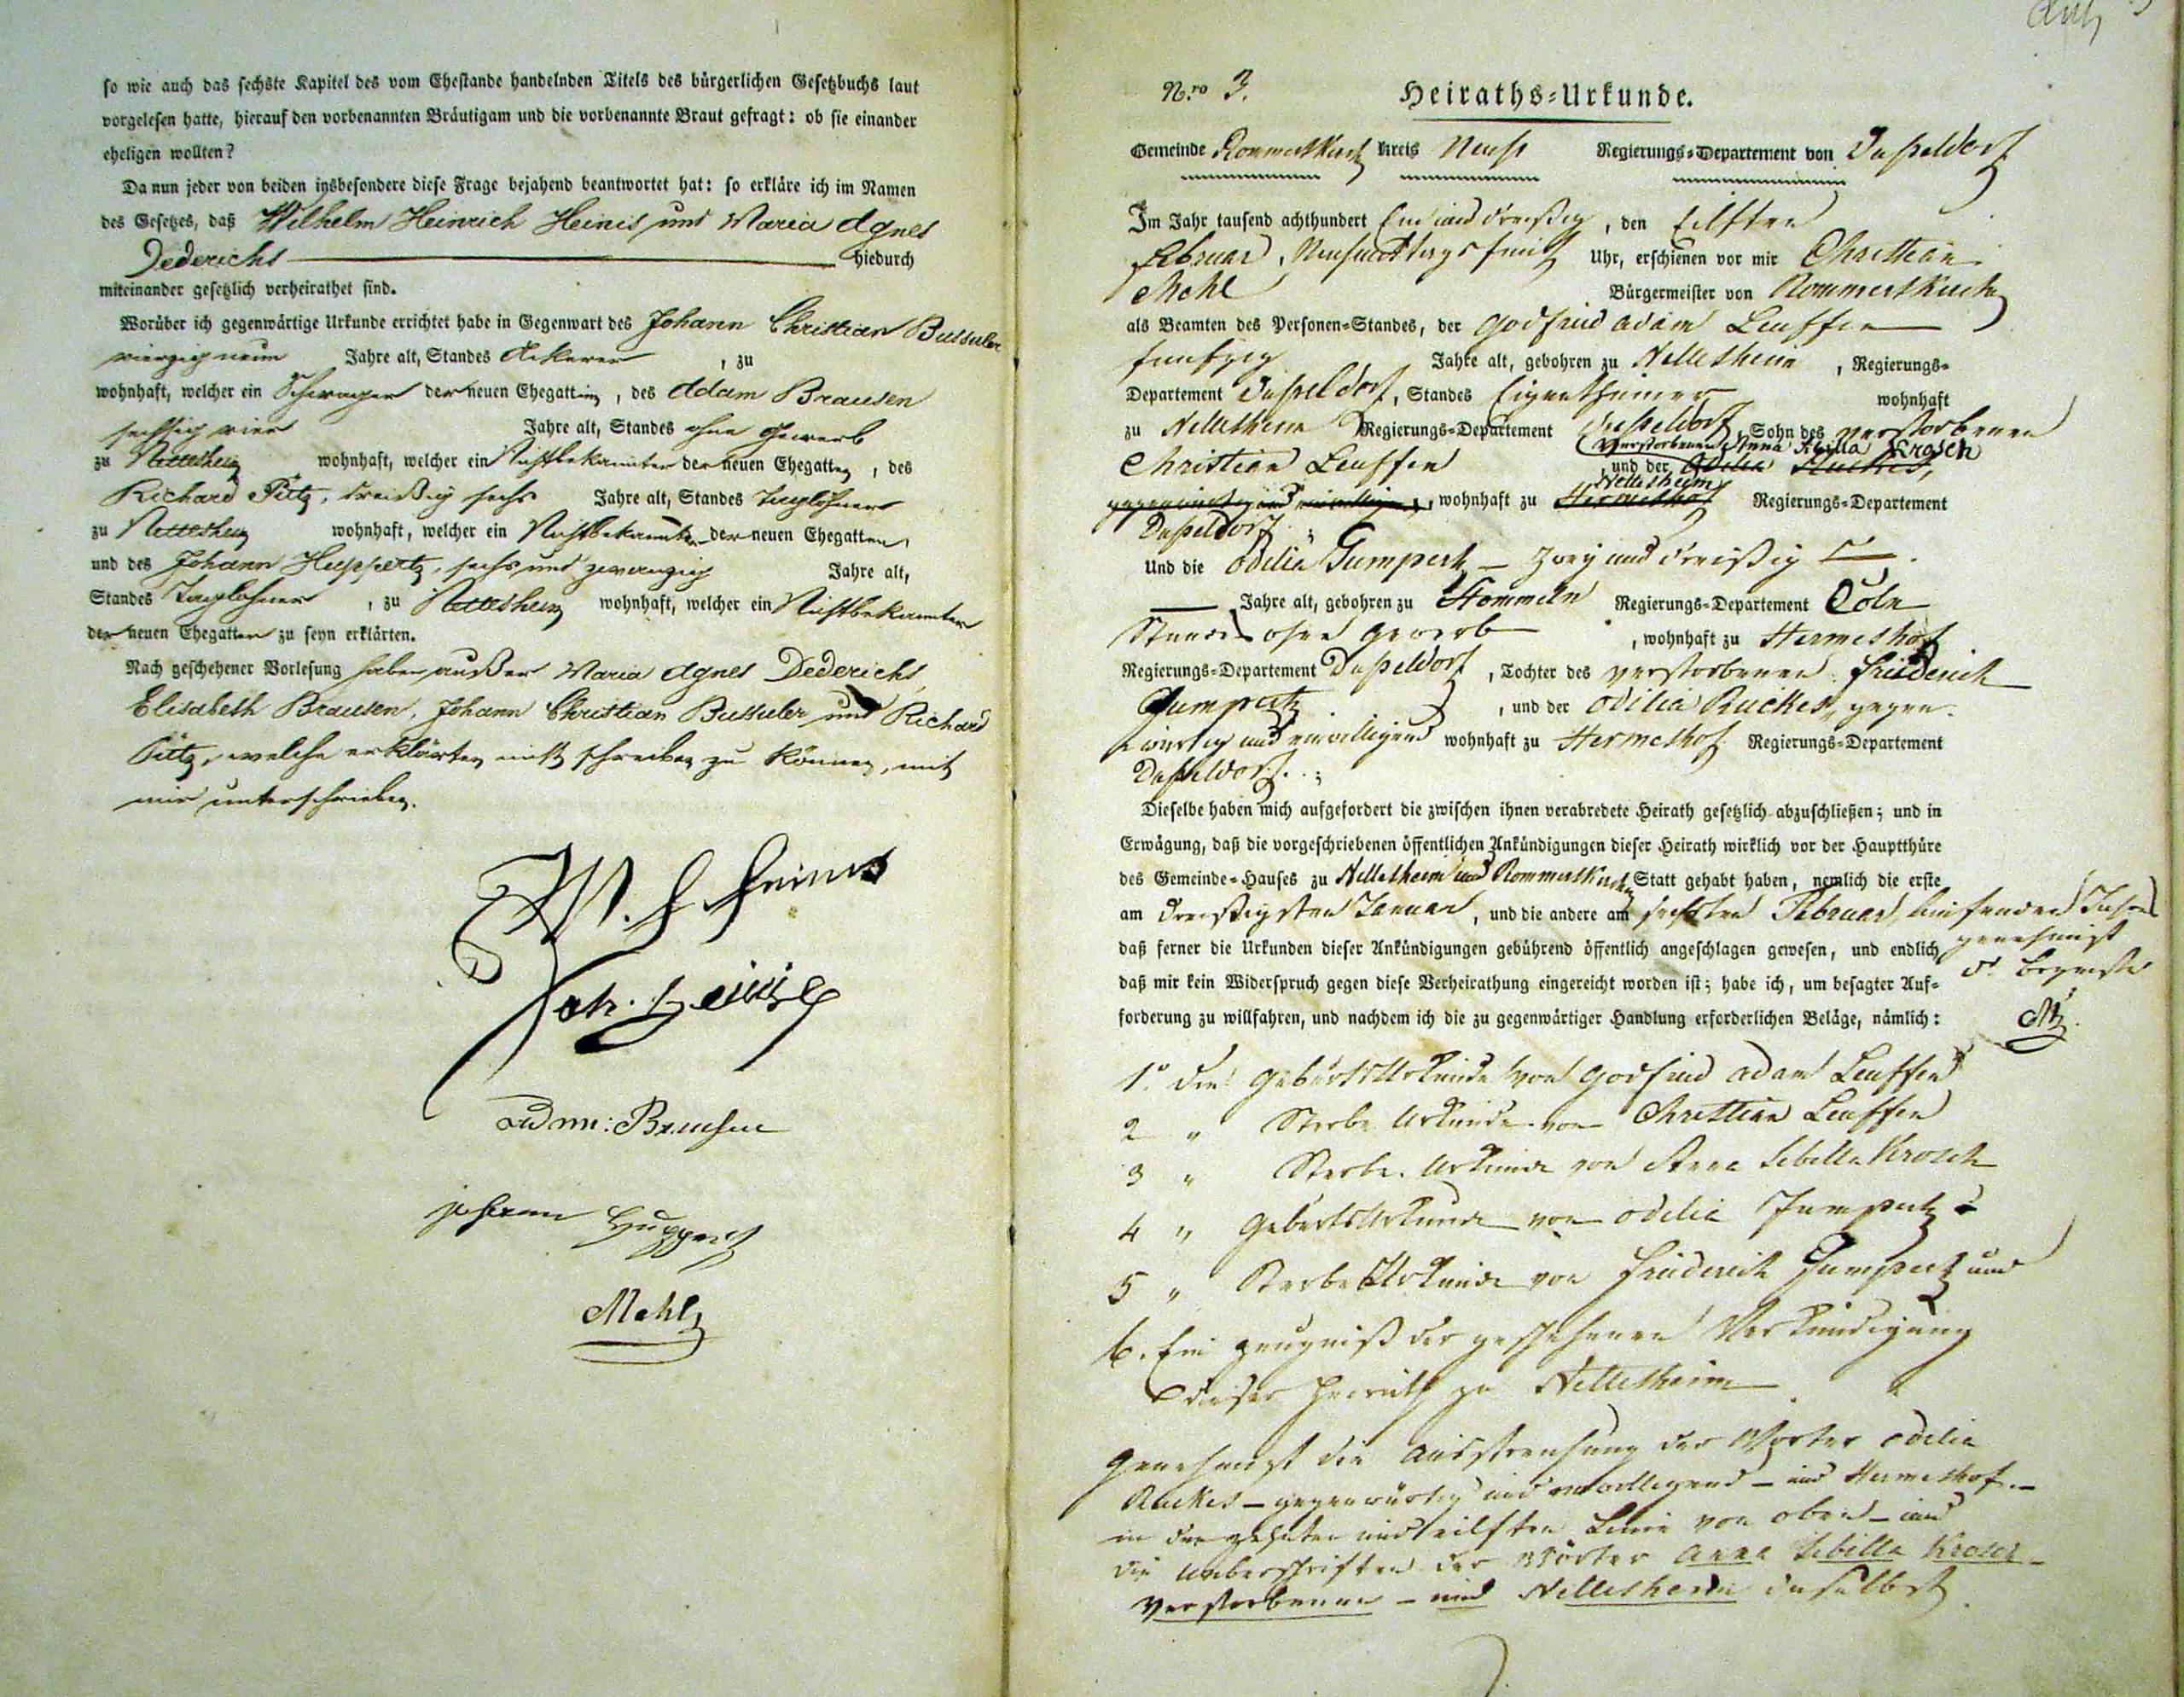 so wie auch das sechste Kapitel des vom Ehestande handelnden Titels des bürgerlichen Gesetzbuchs laut
vorgelesen hatte, hierauf den vorbenannten Bräutigam und die vorbenannte Braut gefragt: ob sie einander
eheligen wollten?
Da nun jeder von beiden insbesondere diese Frage bejahend beantwortet hat: so erkläre ich im Namen
des Gesetzes, daß Wilhelm Heinrich Heinis und Maria Agnes
Dederichs hiedurch
miteinander gesetzlich verheirathet sind.
Worüber ich gegenwärtige Urkunde errichtet habe in Gegenwart des Johann Christian Bussuler
vierzig neun Jahre alt, Standes Ackerer, zu
wohnhaft, welcher ein Schwager der neuen Ehegattin, des Adam Brausen
sechzig vier Jahre alt, Standes ohne Gewerb
zu Nettesheim wohnhaft, welcher ein Nichtbekannter der neuen Ehegatten, des
Richard Pütz, dreißig sechs Jahre alt, Standes Taglöhner
zu Nettesheim wohnhaft, welcher ein Nichtbekannter der neuen Ehegatten,
und des Johann Huppertz, sechs und zwanzig Jahre alt,
Standes Taglöhner, zu Nettesheim wohnhaft, welcher ein Nichtbekannter
der neuen Ehegatten zu seyn erklärten.
Nach geschehener Vorlesung haben außer Maria Agnes Dederichs,
Elisabeth Brausen, Johann Christian Bussuler und Richard
Pütz, welche erklärten nicht schreiben zu können, mit
mir unterschrieben.
W. H. Heinis
Adm: Brausen
Johann Huppertz
Mehl
Nro 3. Heiraths-Urkunde.
Gemeinde Rommerskirch Kreis Neuss Regierungs-Departement von Dusseldorf
Im Jahr tausend achthundert Ein und dreißig, den Eilften
Februar, Nachmittags fünf Uhr, erschienen vor mir Christian
Mehl Bürgermeister von Rommerskirchen
als Beamten des Personen-Standes, der Godfried Adam Leuffen
funfzig Jahre alt, gebohren zu Nettesheim, Regierungs-
Departement Dusseldorf, Standes Eigenthümer wohnhaft
zu Nettesheim Regierungs-Departement Dusseldorf, Sohn des verstorbenen
verstorbenen Anna Sibilla Krosch
Christian Leuffen, und der Odilia Ruckes,
Nettesheim
gegenwärtig und einwilligend, wohnhaft zu Hermeshof Regierungs-Departement
Dusseldorf;
Und die Odilia Gumpertz — zwey und dreißig
Jahre alt, gebohren zu Stommeln Regierungs-Departement Cöln
Standes ohne Gewerb, wohnhaft zu Hermeshof
Regierungs-Departement Dusseldorf, Tochter des verstorbenen Friederich
Gumpertz, und der Odilia Ruckes, gegen-
wärtig und einwilligend wohnhaft zu Hermeshof Regierungs-Departement
Dusseldorf;
Dieselbe haben mich aufgefordert die zwischen ihnen verabredete Heirath gesetzlich abzuschließen; und in
Erwägung, daß die vorgeschriebenen öffentlichen Ankündigungen dieser Heirath wirklich vor der Hauptthüre
des Gemeinde-Hauses zu Nettesheim und Rommerskirchen Statt gehabt haben, nemlich die erste
am dreißigsten Januar, und die andere am sechsten Februar laufenden Jahres
daß ferner die Urkunden dieser Ankündigungen gebührend öffentlich angeschlagen gewesen, und endlich
genehmigt
daß mir kein Widerspruch gegen diese Verheirathung eingereicht worden ist; habe ich, um besagter Auf-
forderung zu willfahren, und nachdem ich die zu gegenwärtiger Handlung erforderlichen Beläge, nämlich:
1° die Geburts Urkunde von Godfried Adam Leuffen
2 " Sterbe Urkunde von Christian Leuffen
3 " Sterbe Urkunde von Anna Sibilla Krosch
4 " Geburts Urkunde von Odilia Gumpertz
5 " Sterbe Urkunde von Friederich Gumpertz und
6. Ein Zeugniß der geschehenen Verkündigung
dieser Heirath zu Nettesheim
Genehmigt die Ausstreichung der Wörter Odilia
Ruckes — gegenwärtig und einwilligend — und Hermeshof —
in der zehnten und eilften Linie von oben — und
die Ueberschriften der Wörter Anna Sibilla Krosch —
Verstorbenen — und Nettesheim daselbst